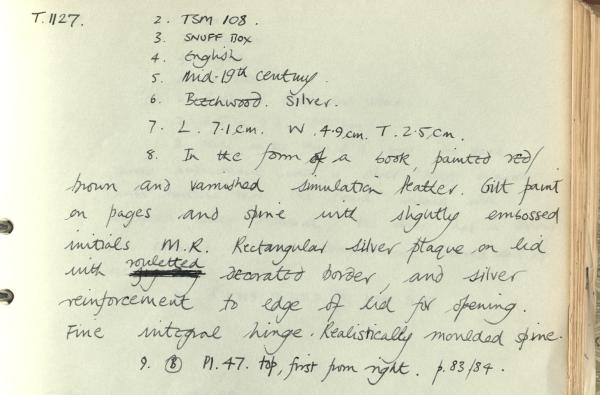 T.1127. 2. TSM 108.
3. SNUFF BOX
4. English
5. Mid-19th century.
6. Beechwood. Silver.
7. L. 7.1.cm. W. 4.9.cm. T. 2.5.cm.
8. In the form of a book, painted red/
brown and varnished simulation leather. Gilt paint
on pages and spine with slightly embossed
initials M.R. Rectangular silver plaque on lid
with rouletted decorated border, and silver
reinforcement to edge of lid for opening.
Fine integral hinge. Realistically moulded spine.
9. (B) Pl. 47. top, first from right. p. 83/84.